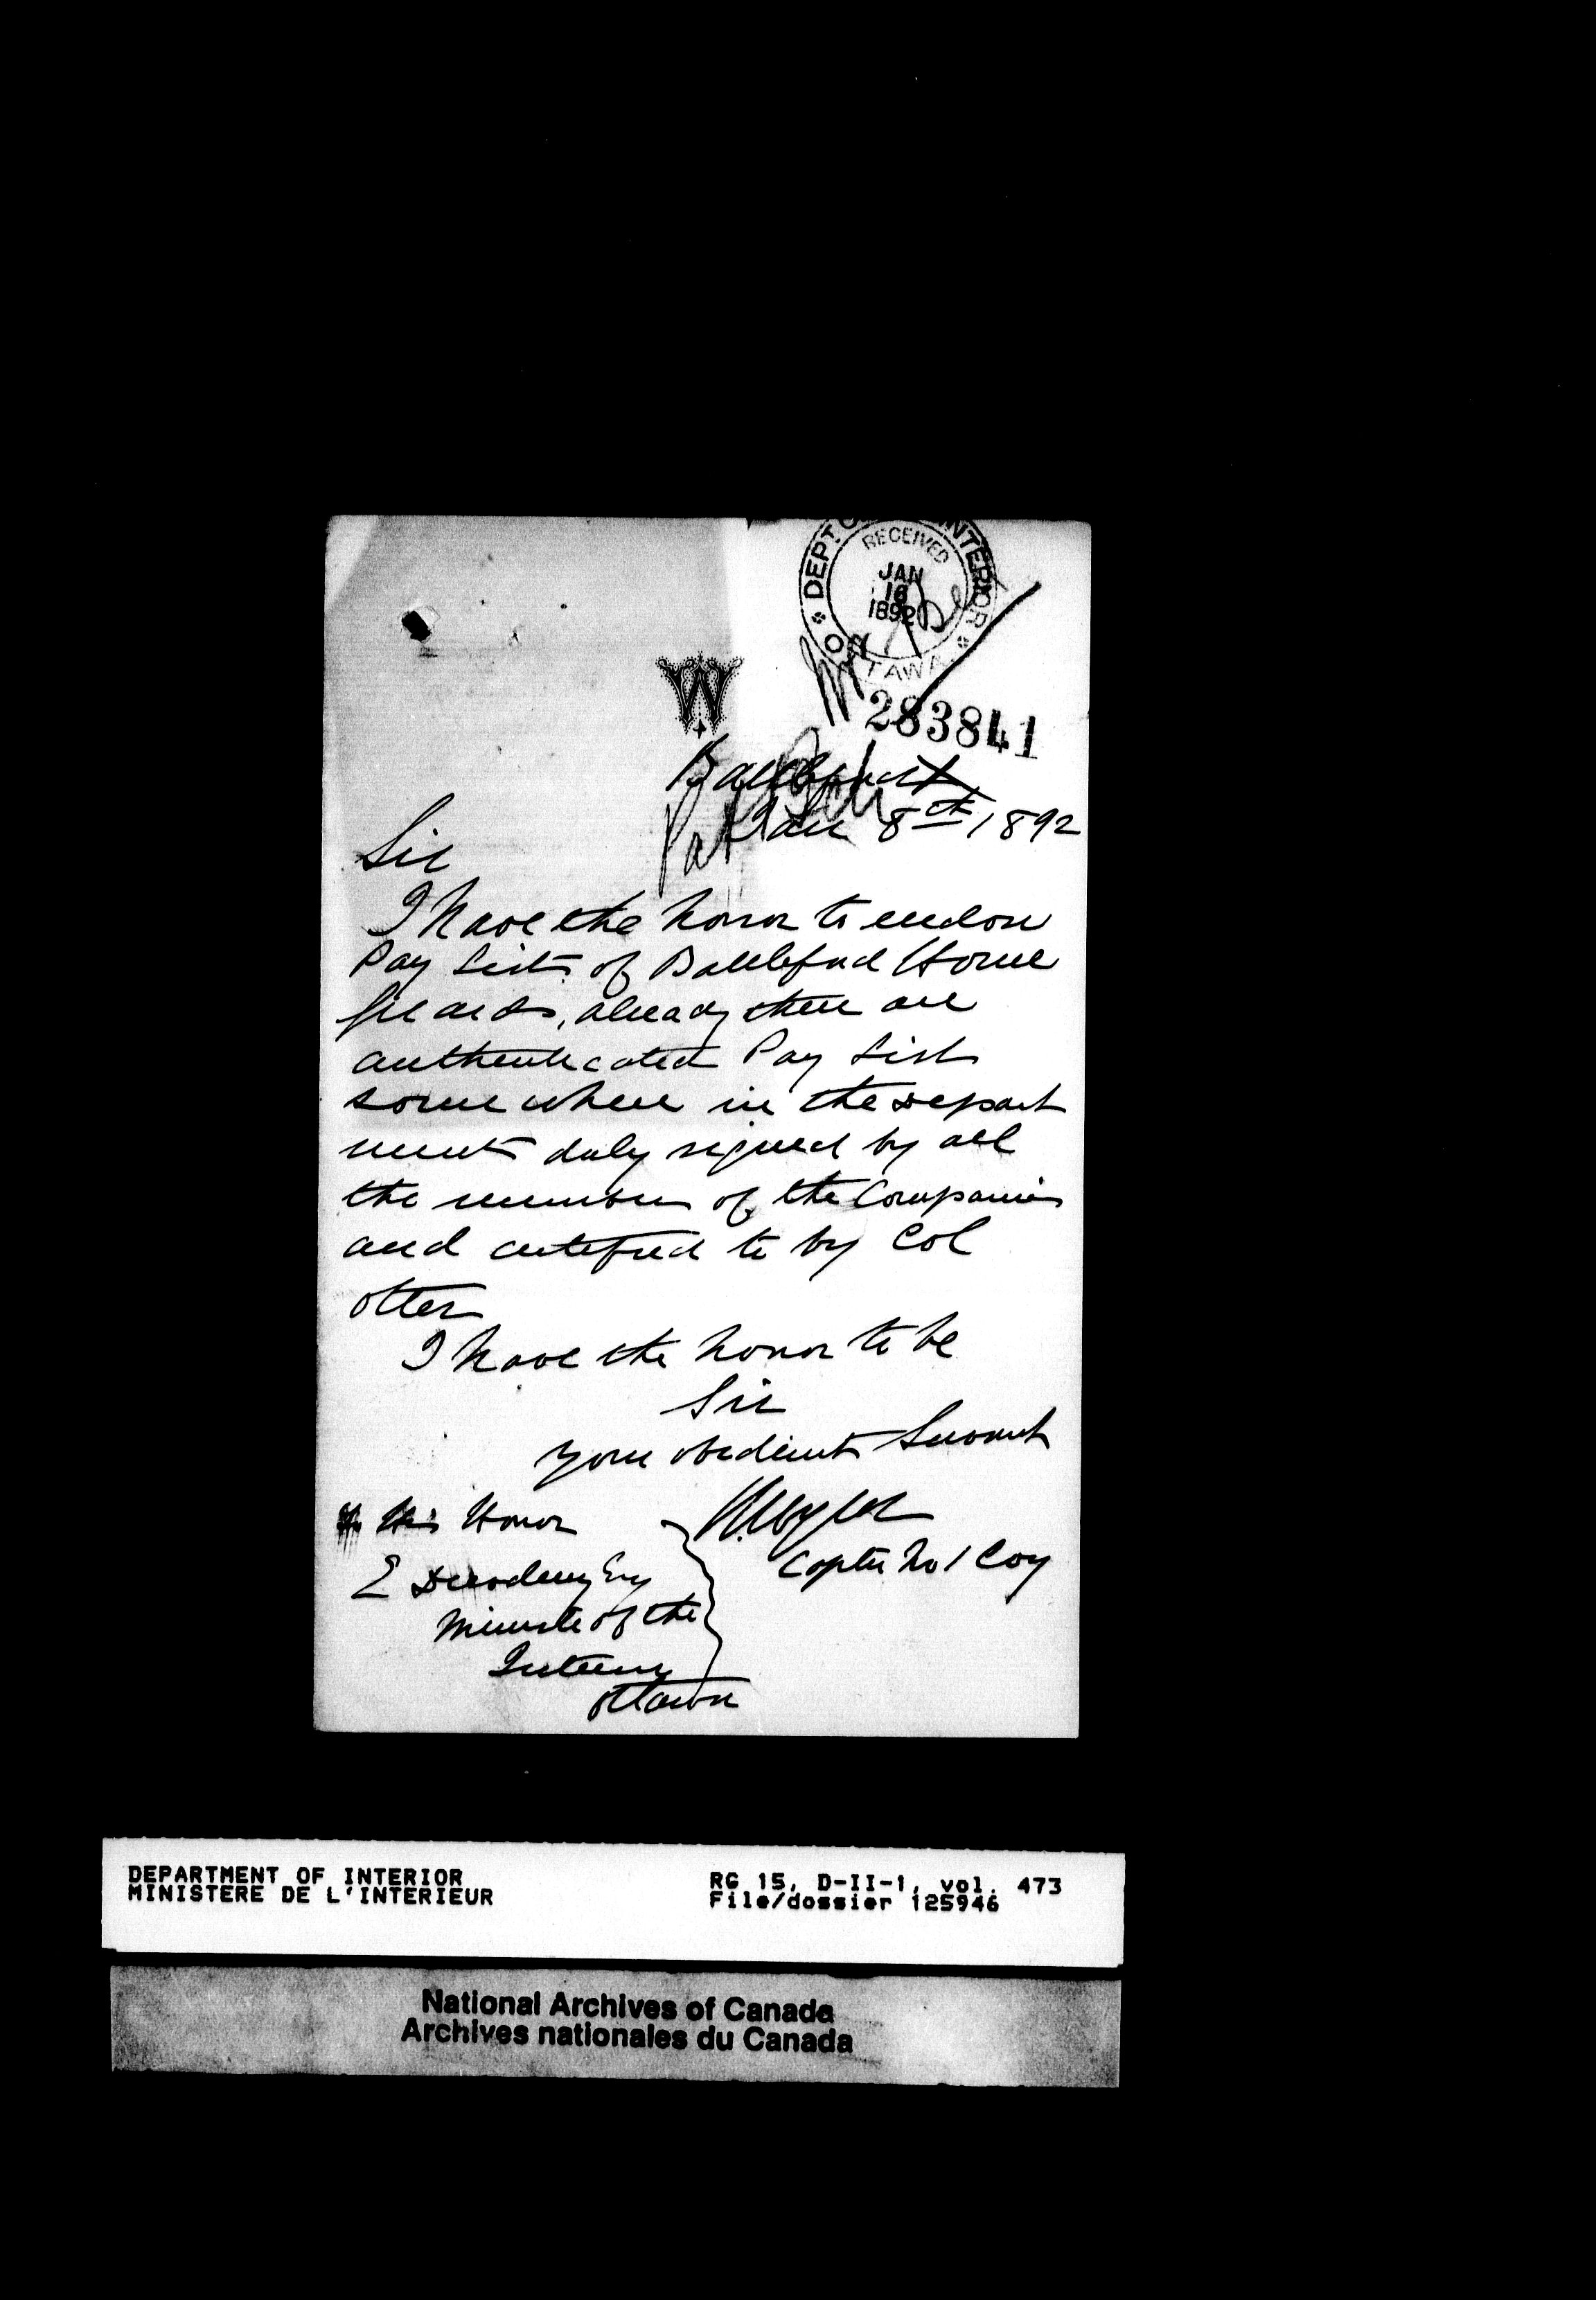 DEPT. OF INTERIOR
RECEIVED
JAN
16
1892
OTTAWA
W
283841
Battleford
Jan 8th 1892
Sir
I have the honor to enclose
Pay Lists of Battleford Home
Guards, already there are
authenticated Pay Lists
some where in the depart
ment duly signed by all
the members of the Companies
and certified to by Col
Otter
I have the honor to be
Sir
your obedient Servant
Captn No 1 Coy
His Honor
E Dewdney Esq
Minister of the
Interior
Ottawa
DEPARTMENT OF INTERIOR
MINISTERE DE L'INTERIEUR
RG 15, D-II-1, vol. 473
File/dossier 125946
National Archives of Canada
Archives nationales du Canada